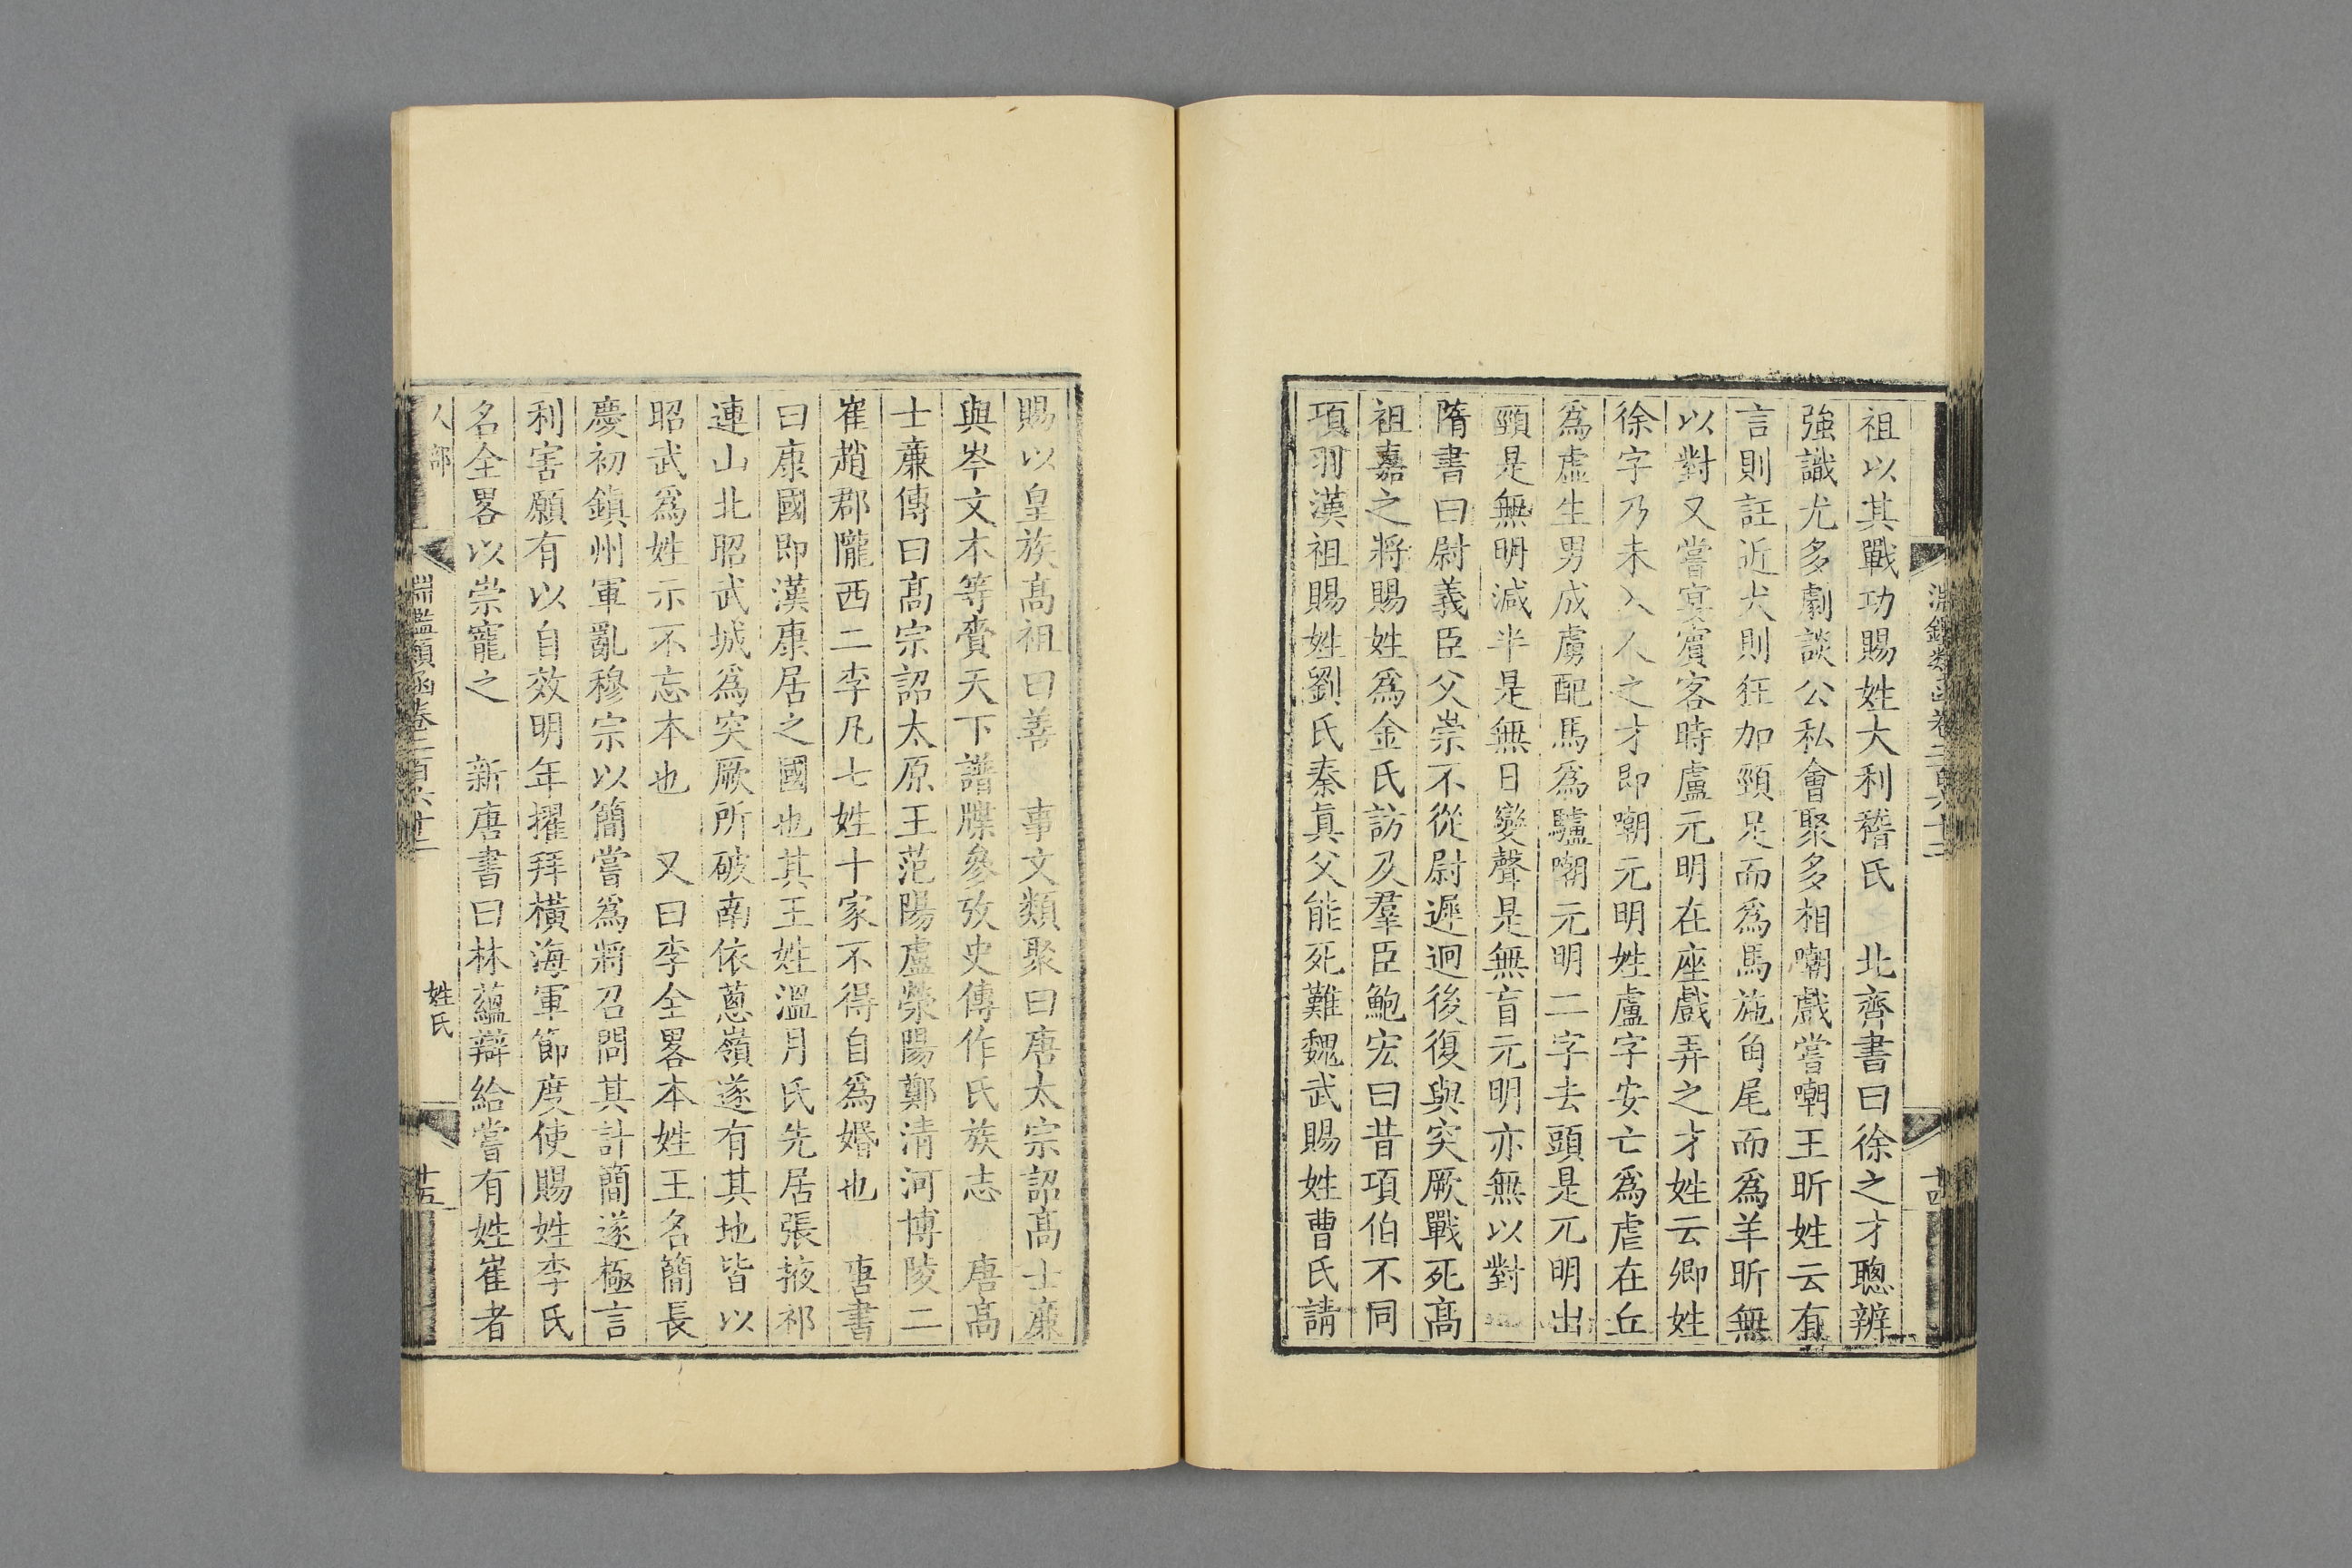 祖以其戰功賜姓大利稽氏　北齊書曰徐之才聰辨
強識尤多劇談公私會聚多相嘲戲嘗嘲王昕姓云有
言則註近犬則狂加頸足而爲馬施角尾而爲羊昕無
以對又嘗宴賓客時盧元明在座戲弄之才姓云卿姓
徐字乃未入人之才即嘲元明姓盧字安亡爲虐在丘
爲虛生男成虜配馬爲驢嘲元明二字去頭是兀明出
頸是無明減半是無日變聲是無盲元明亦無以對
隋書曰尉義臣父崇不從尉遲迥後復與突厥戰死高
祖嘉之將賜姓爲金氏訪及羣臣鮑宏曰昔項伯不同
項羽漢祖賜姓劉氏秦真父能死難魏武賜姓曹氏請
賜以皇族高祖曰善　事文類聚曰唐太宗詔高士廉
與岑文本等賷天下譜牒參攷史傳作氏族志　唐高
士廉傳曰高宗詔太原王范陽盧榮陽鄭清河博陵二
崔趙郡隴西二李凡七姓十家不得自爲婚也　唐書
曰康國即漢康居之國也其王姓溫月氏先居張掖祁
連山北昭武城爲突厥所破南依蔥嶺遂有其地皆以
昭武爲姓示不忘本也　又曰李全畧本姓王名簡長
慶初鎮州軍亂穆宗以簡嘗爲將召問其計簡遂極言
利害願有以自效明年擢拜橫海軍節度使賜姓李氏
名全畧以崇寵之　新唐書曰林蘊辯給嘗有姓崔者
人部
淵鑑類函卷二百六十二
姓氏